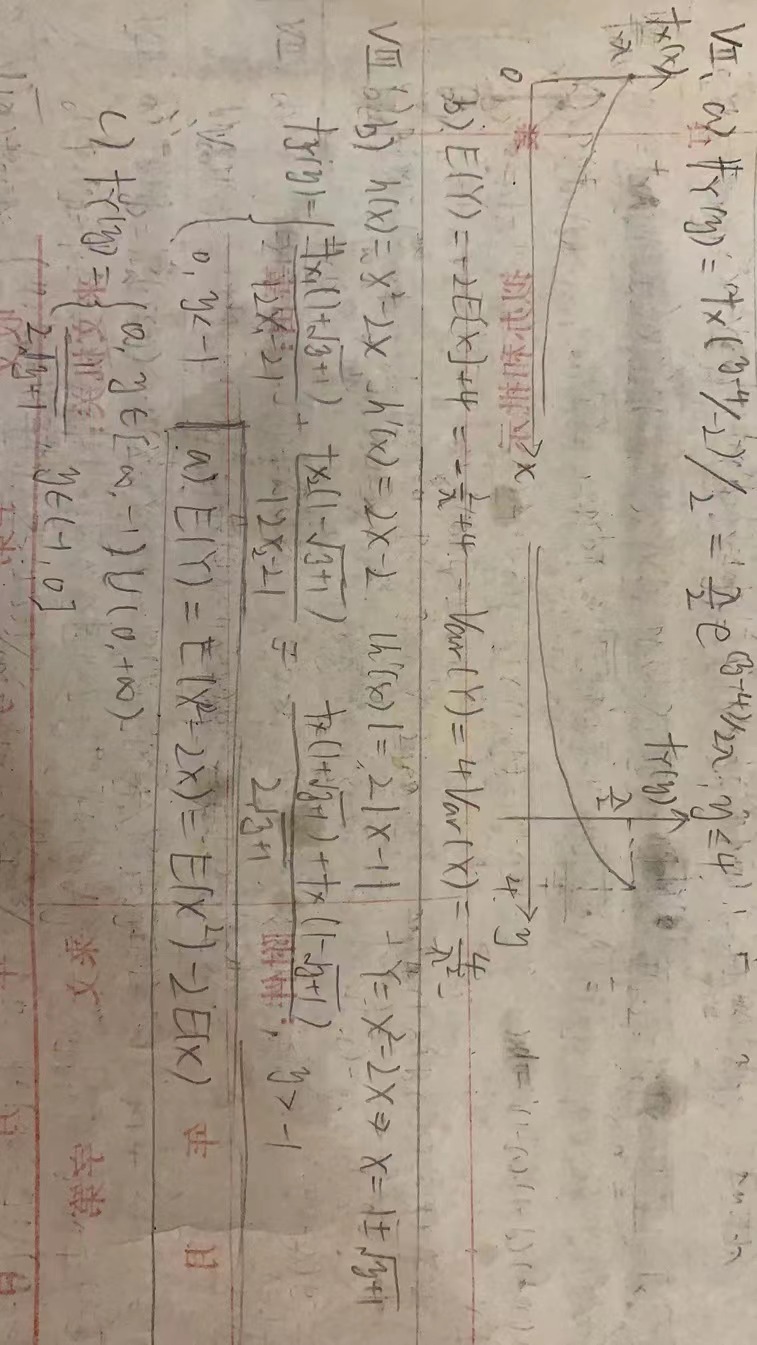 VII. a) f_Y(y) = f_X((y-4)/-2)/2 = λ/2 e^{(y-4)/2 λ}, y≤4
f_X(x) λ 0 x f_Y(y) λ/2 4 y
b). E(Y) = -2E[X]+4 = -2/λ+4 Var(Y) = 4Var(X) = 4/λ²
VIII b) h(x) = x²-2x h'(x) = 2x-2 |h'(x)| = 2|x-1| Y = X²-2X ⇒ X = 1±√(y+1)
f_Y(y) = { f_{X1}(1+√(y+1))/|2X₁-2| + f_{X2}(1-√(y+1))/|2X₂-2| = (f_X(1+√(y+1)) + f_X(1-√(y+1)))/(2√(y+1)), y > -1
0, y< -1
a). E(Y) = E(X²-2X) = E(X²)-2E(X)
c). f_Y(y) = { 0, y∈[-∞, -1)∪(0, +∞)
1/(2√(y+1)), y∈(-1, 0]